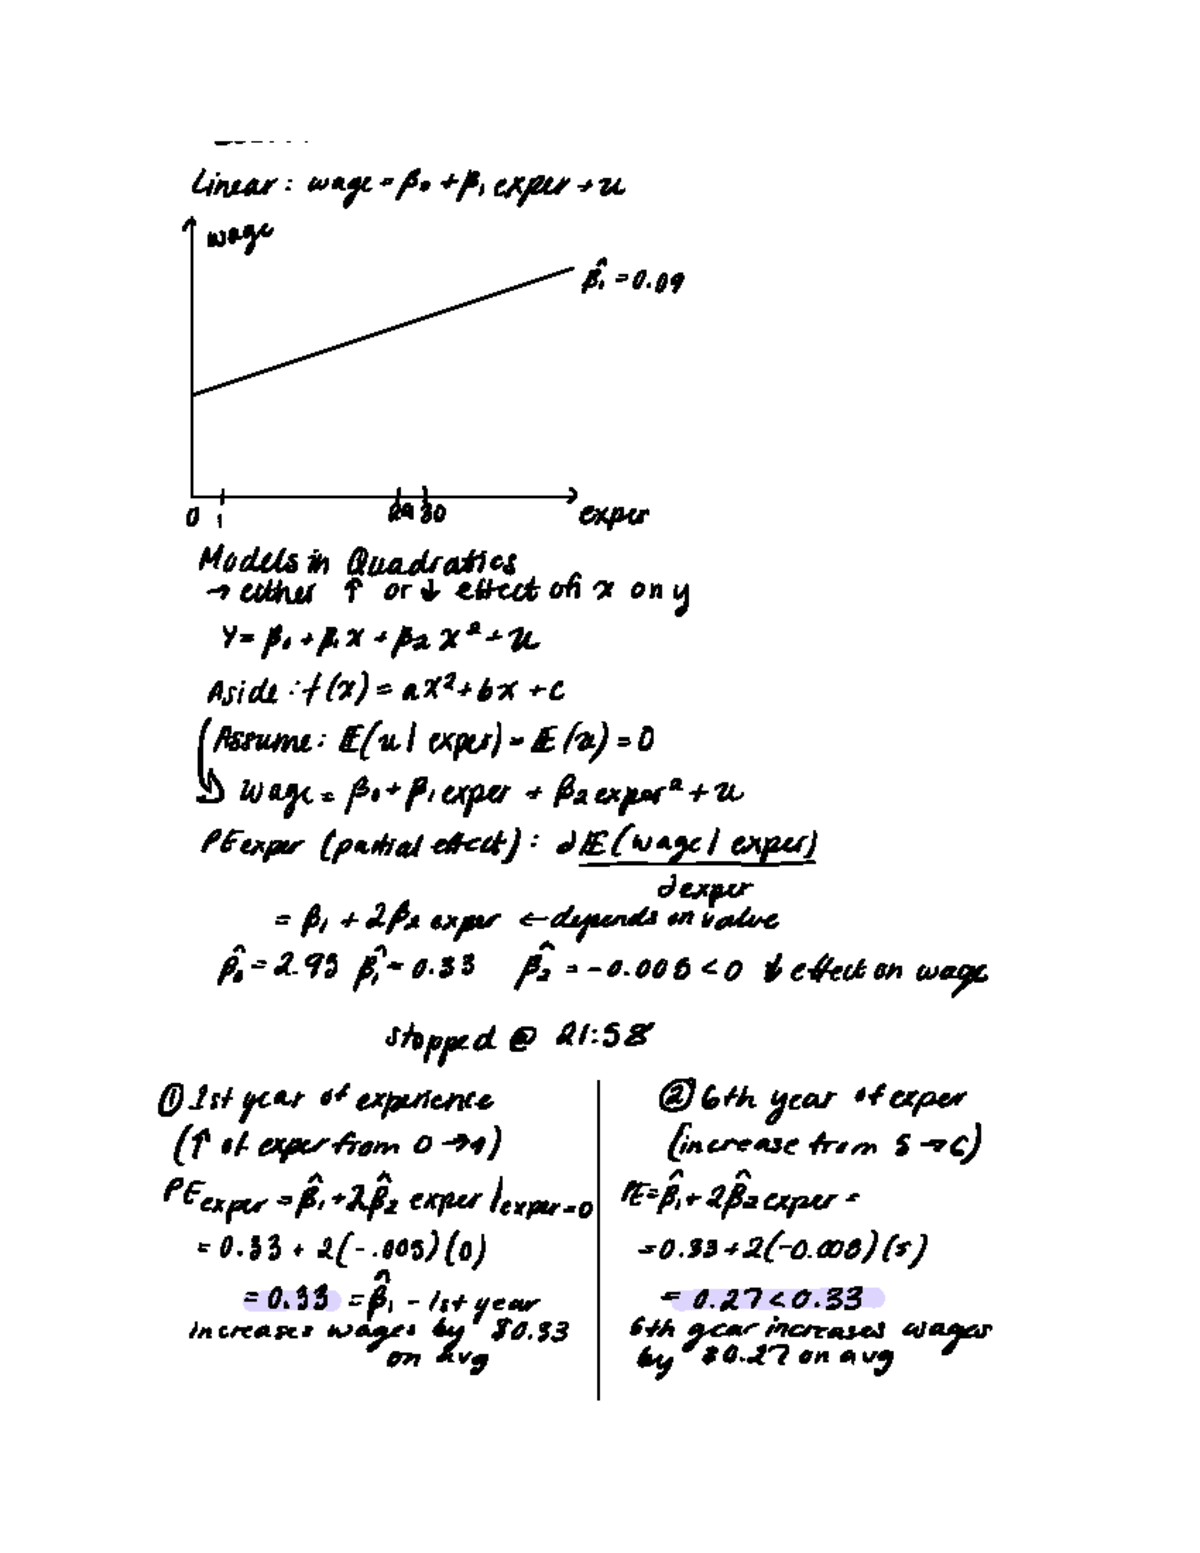 Linear: wage = β₀ + β₁ exper + u
wage
β̂₁ = 0.09
0 1 29 30 exper
Models in Quadratics
→ either ↑ or ↓ effect of x on y
Y = β₀ + β₁ x + β₂ x² + u
Aside: f(x) = ax² + bx + c
Assume: E(u | exper) = E(u) = 0
wage = β₀ + β₁ exper + β₂ exper² + u
PE exper (partial effect): ∂E(wage | exper)
∂exper
= β₁ + 2β₂ exper ← depends on value
β̂₀ = 2.93 β̂₁ = 0.33 β̂₂ = -0.006 < 0 ↓ effect on wage
stopped @ 21:58
① 1st year of experience
(↑ of exper from 0 → 1)
PE exper = β̂₁ + 2β̂₂ exper | exper = 0
= 0.33 + 2(-.005)(0)
= 0.33 = β̂₁ - 1st year
increases wages by $0.33
on avg
② 6th year of exper
(increase from 5 → 6)
PE = β̂₁ + 2β̂₂ exper =
= 0.33 + 2(-0.006)(5)
= 0.27 < 0.33
6th year increases wages
by $0.27 on avg